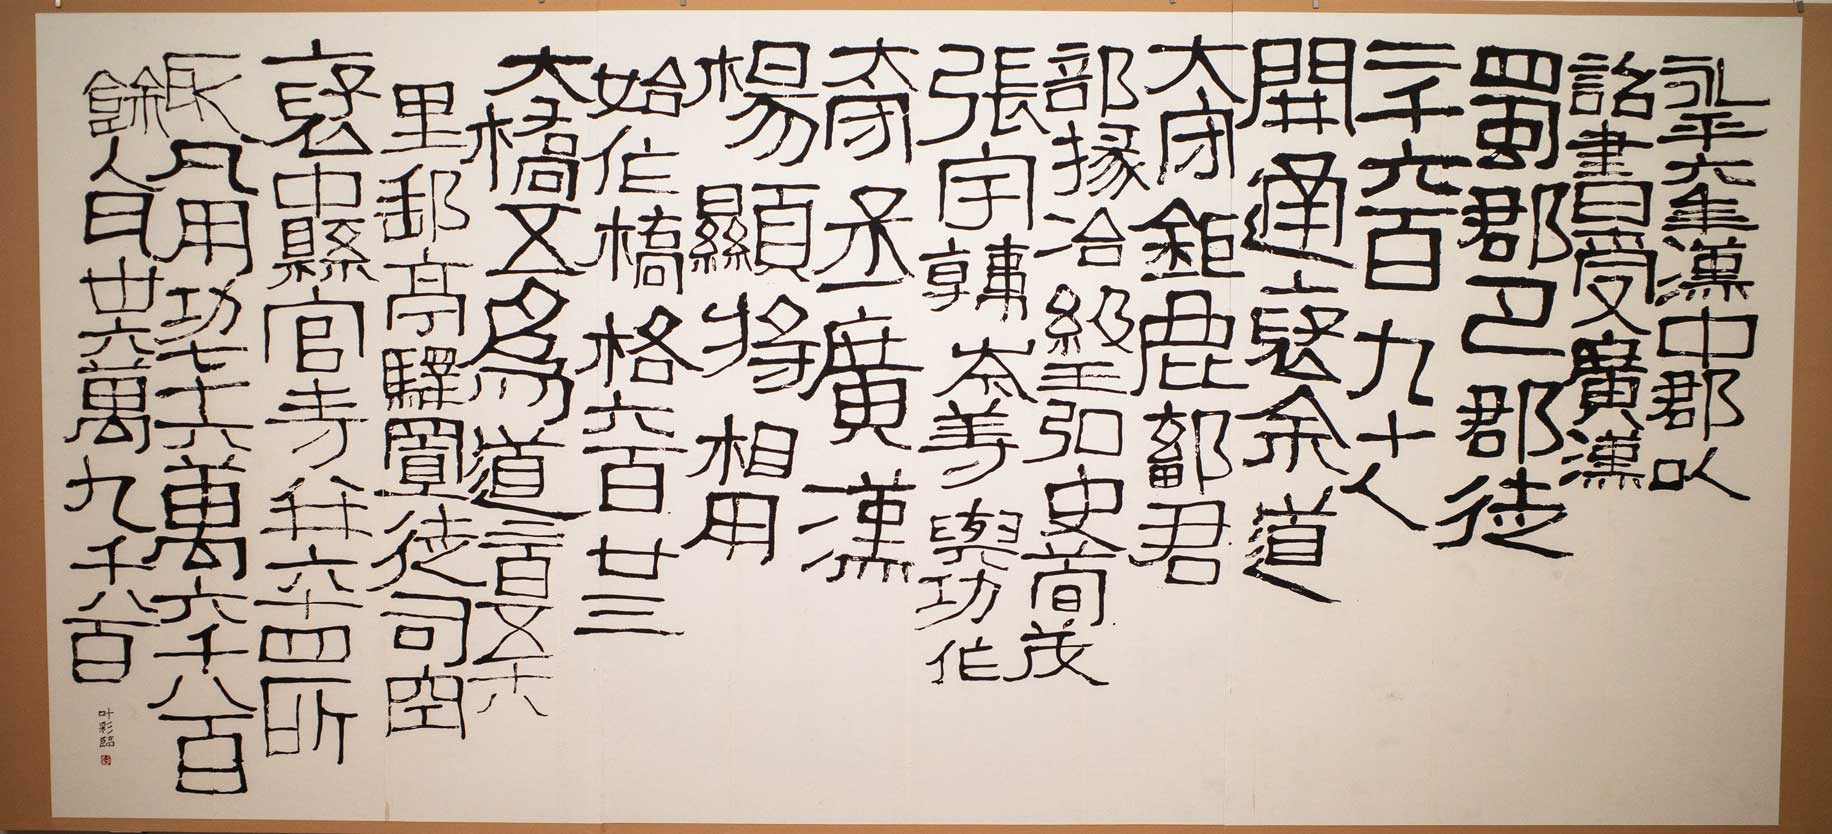 永平六年漢中郡以
詔書曰受廣漢
蜀郡巴郡徒
二千六百九十人
開通褒余道
大守鉅鹿鄐君
部掾冶級王弘史荀茂
張宇韓岑等興功作
大守丞廣漢
楊顯將相用
始作橋格六百廿三
大橋五為道二百五十八
里郵亭驛置徒司空
褒中縣官寺并六十四所
凡用功七十六萬六千八百
餘人日卅六萬九千八百
叶彩臨